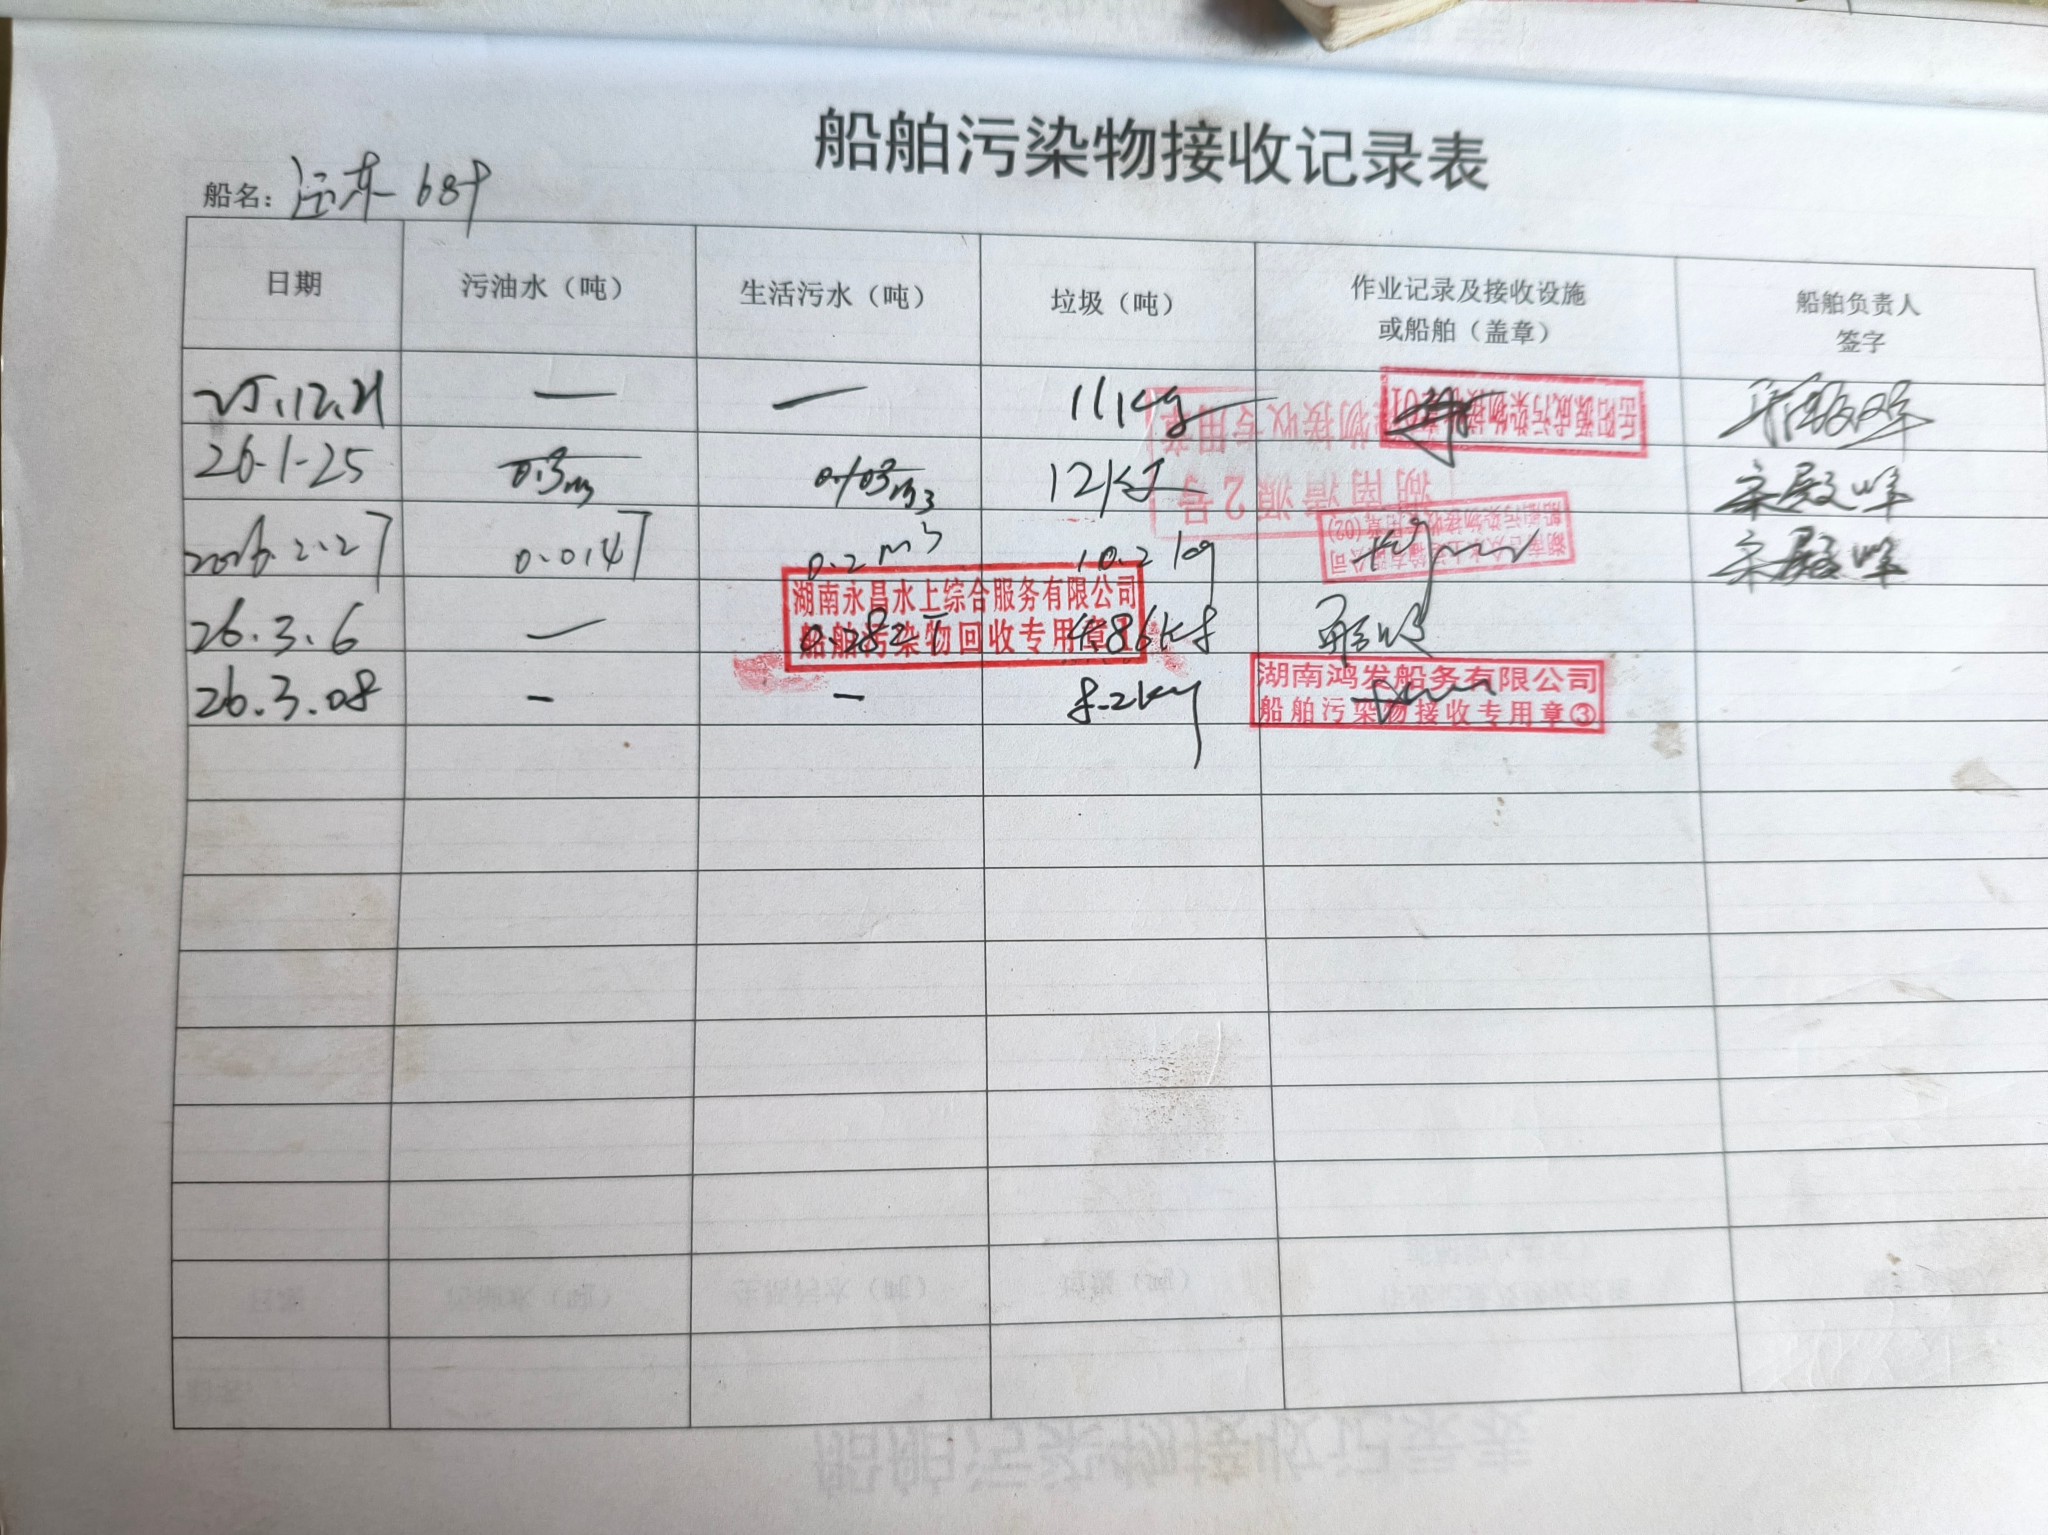 船舶污染物接收记录表
船名：远东 689
日期 污油水（吨） 生活污水（吨） 垃圾（吨） 作业记录及接收设施或船舶（盖章） 船舶负责人签字
25.12.21 — — 11kg
岳阳源成污染物接收
26.1.25 0.3m³ 0.103m3 12kg 宋殿峰
湖南清源2号
物接收专用章
2026.2.27 0.0147 0.2m3 10.2kg 宋殿峰
26.3.6 — 0.282T 4.86kg
湖南永昌水上综合服务有限公司
船舶污染物回收专用章1
26.3.08 - - 8.2kg
湖南鸿发船务有限公司
船舶污染物接收专用章③